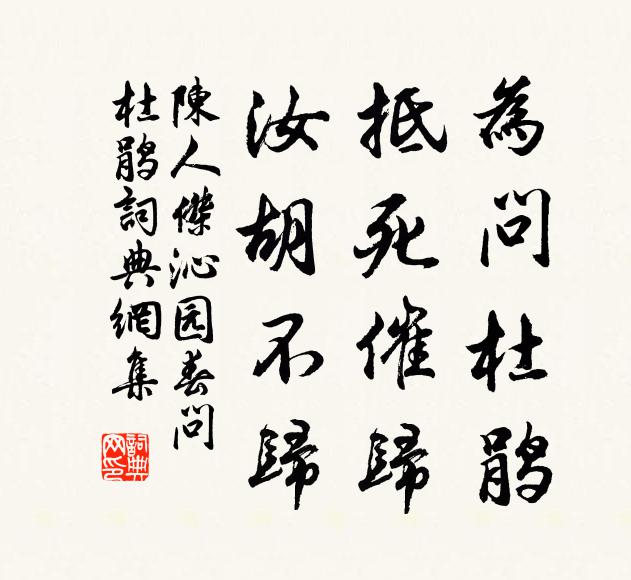 為問杜鹃
抵死催歸
汝胡不歸
陳人傑沁园春问
杜鹃詞典網集
詞典
网印